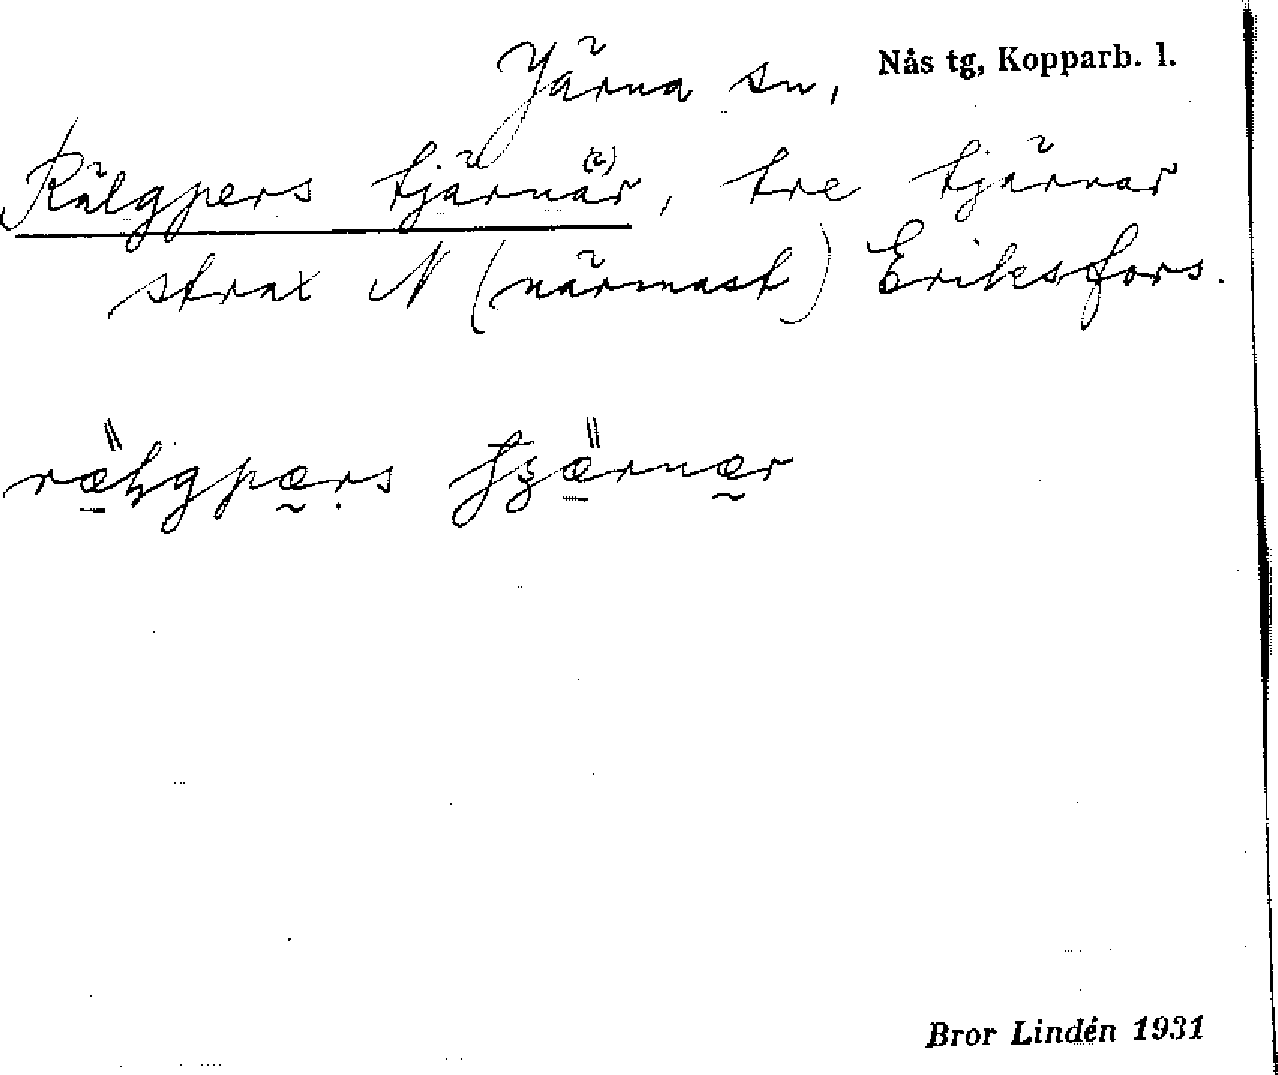 Järna sn, Nås tg, Kopparb. l.
Rälgpers tjärnär, tre tjärnar
strax N (närmast) Eriksfors.
Bror Lindén 1931